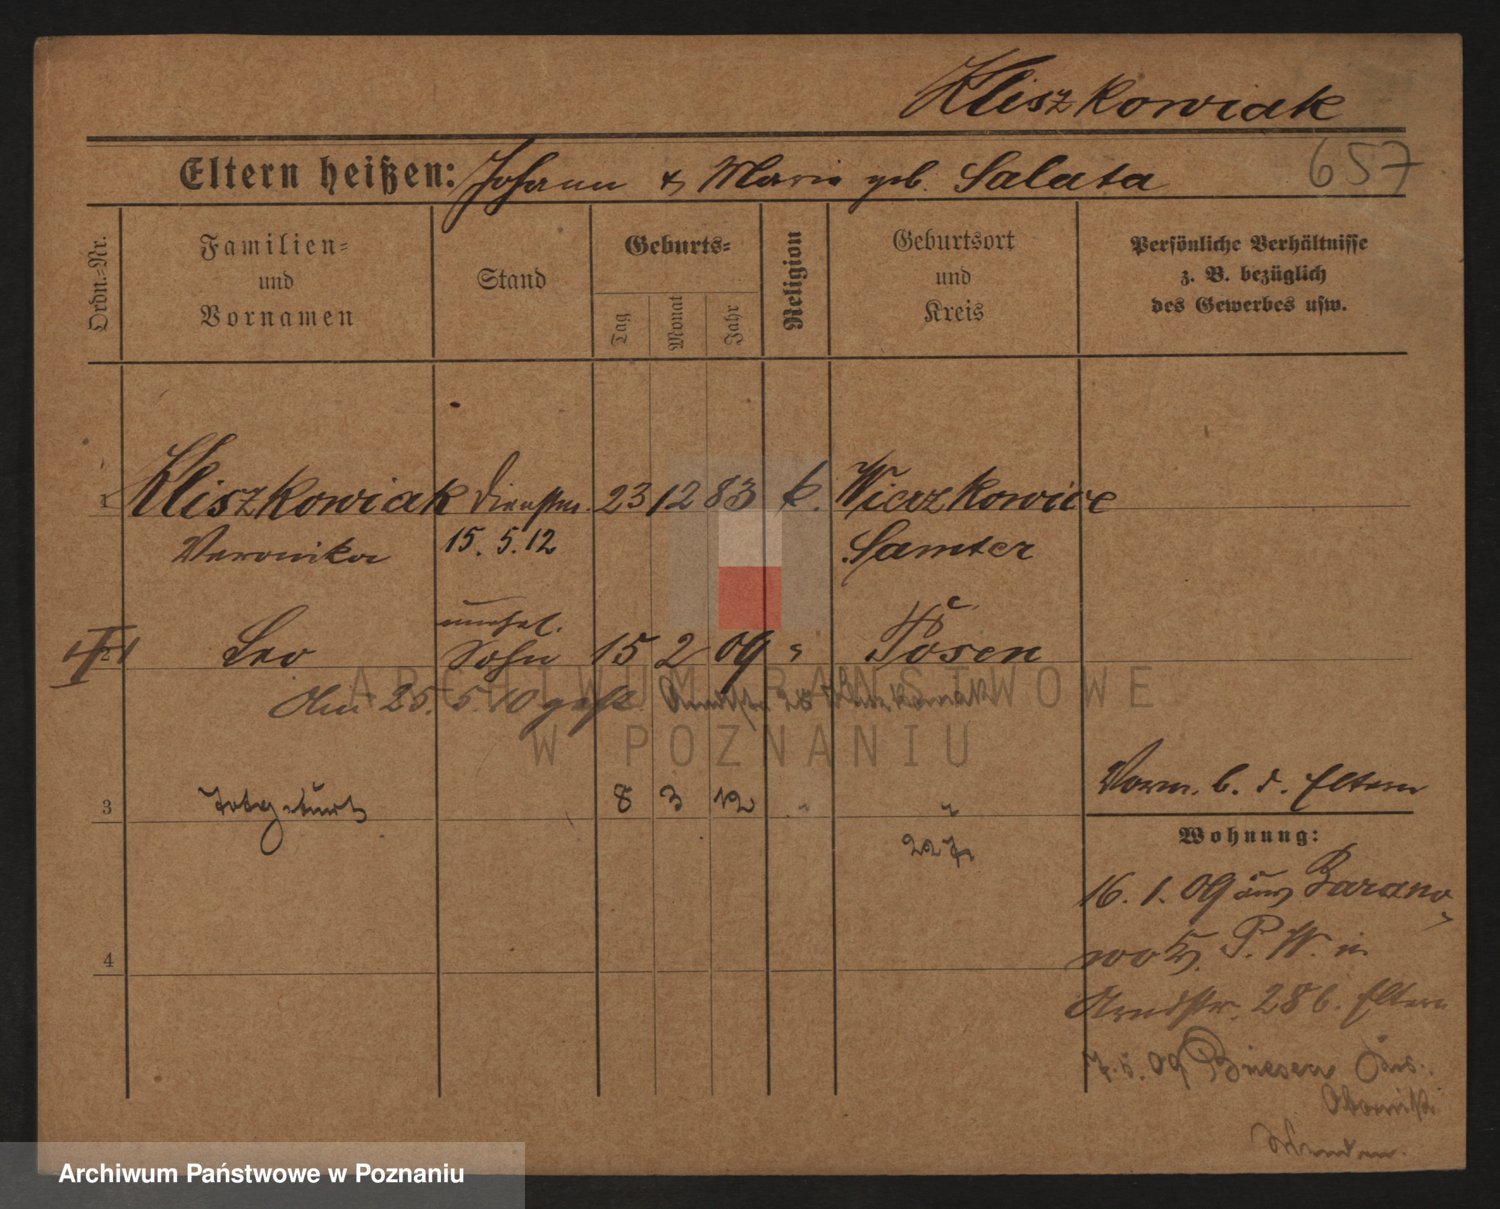 Kliszkowiak
Eltern heißen: Johann & Maria geb. Salata 657
Ordn.-Nr.
Familien-
und
Vornamen
Stand
Geburts-
Tag
Monat
Jahr
Religion
Geburtsort
und
Kreis
Persönliche Verhältnisse
z. B. bezüglich
des Gewerbes usw.
1 Kliszkowiak Dienstm. 23 12 83 k. Wierzkowice
Veronika 15. 5. 12 Samter
unehel.
2 Leo Sohn 15 2 09 " Posen
Am 25. 5. 10 gest.
3 Totgeburt 8 3 12 " "
Vorm. b. d. Eltern
Wohnung:
16. 1. 09 aus Barano-
wo Kr. P. W. in
4
Arndtstr. 28 b. Eltern
7. 5. 09 Briesen Krs.
Obornik
ARCHIWUM PAŃSTWOWE
W POZNANIU
Archiwum Państwowe w Poznaniu